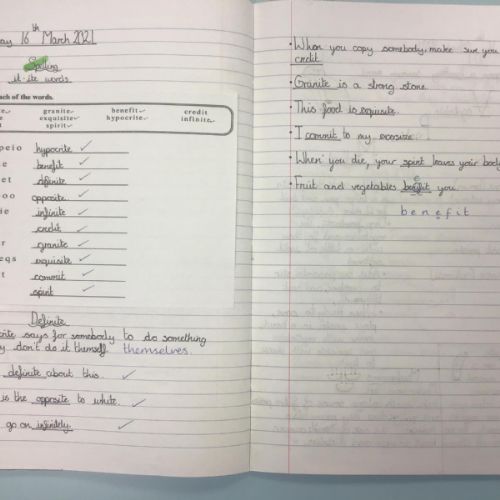 ay 16th March 2021
Spelling
it-ite words
ach of the words.
e granite benefit credit
e exquisite hypocrite infinite
t spirit
peio hypocrite
e benefit
et definite
oo opposite
ie infinite
credit
r granite
eqs exquisite
t commit
spirit
Definite
rite says for somebody to do something
y don't do it themself. themselves
definite about this.
is the opposite to white.
go on infinitely.
• When you copy somebody, make sure you
credit
• Granite is a strong stone.
• This food is exquisite.
• I commit to my exercise.
• When you die, your spirit leaves your body
• Fruit and vegetables benifit you.
e
benefit